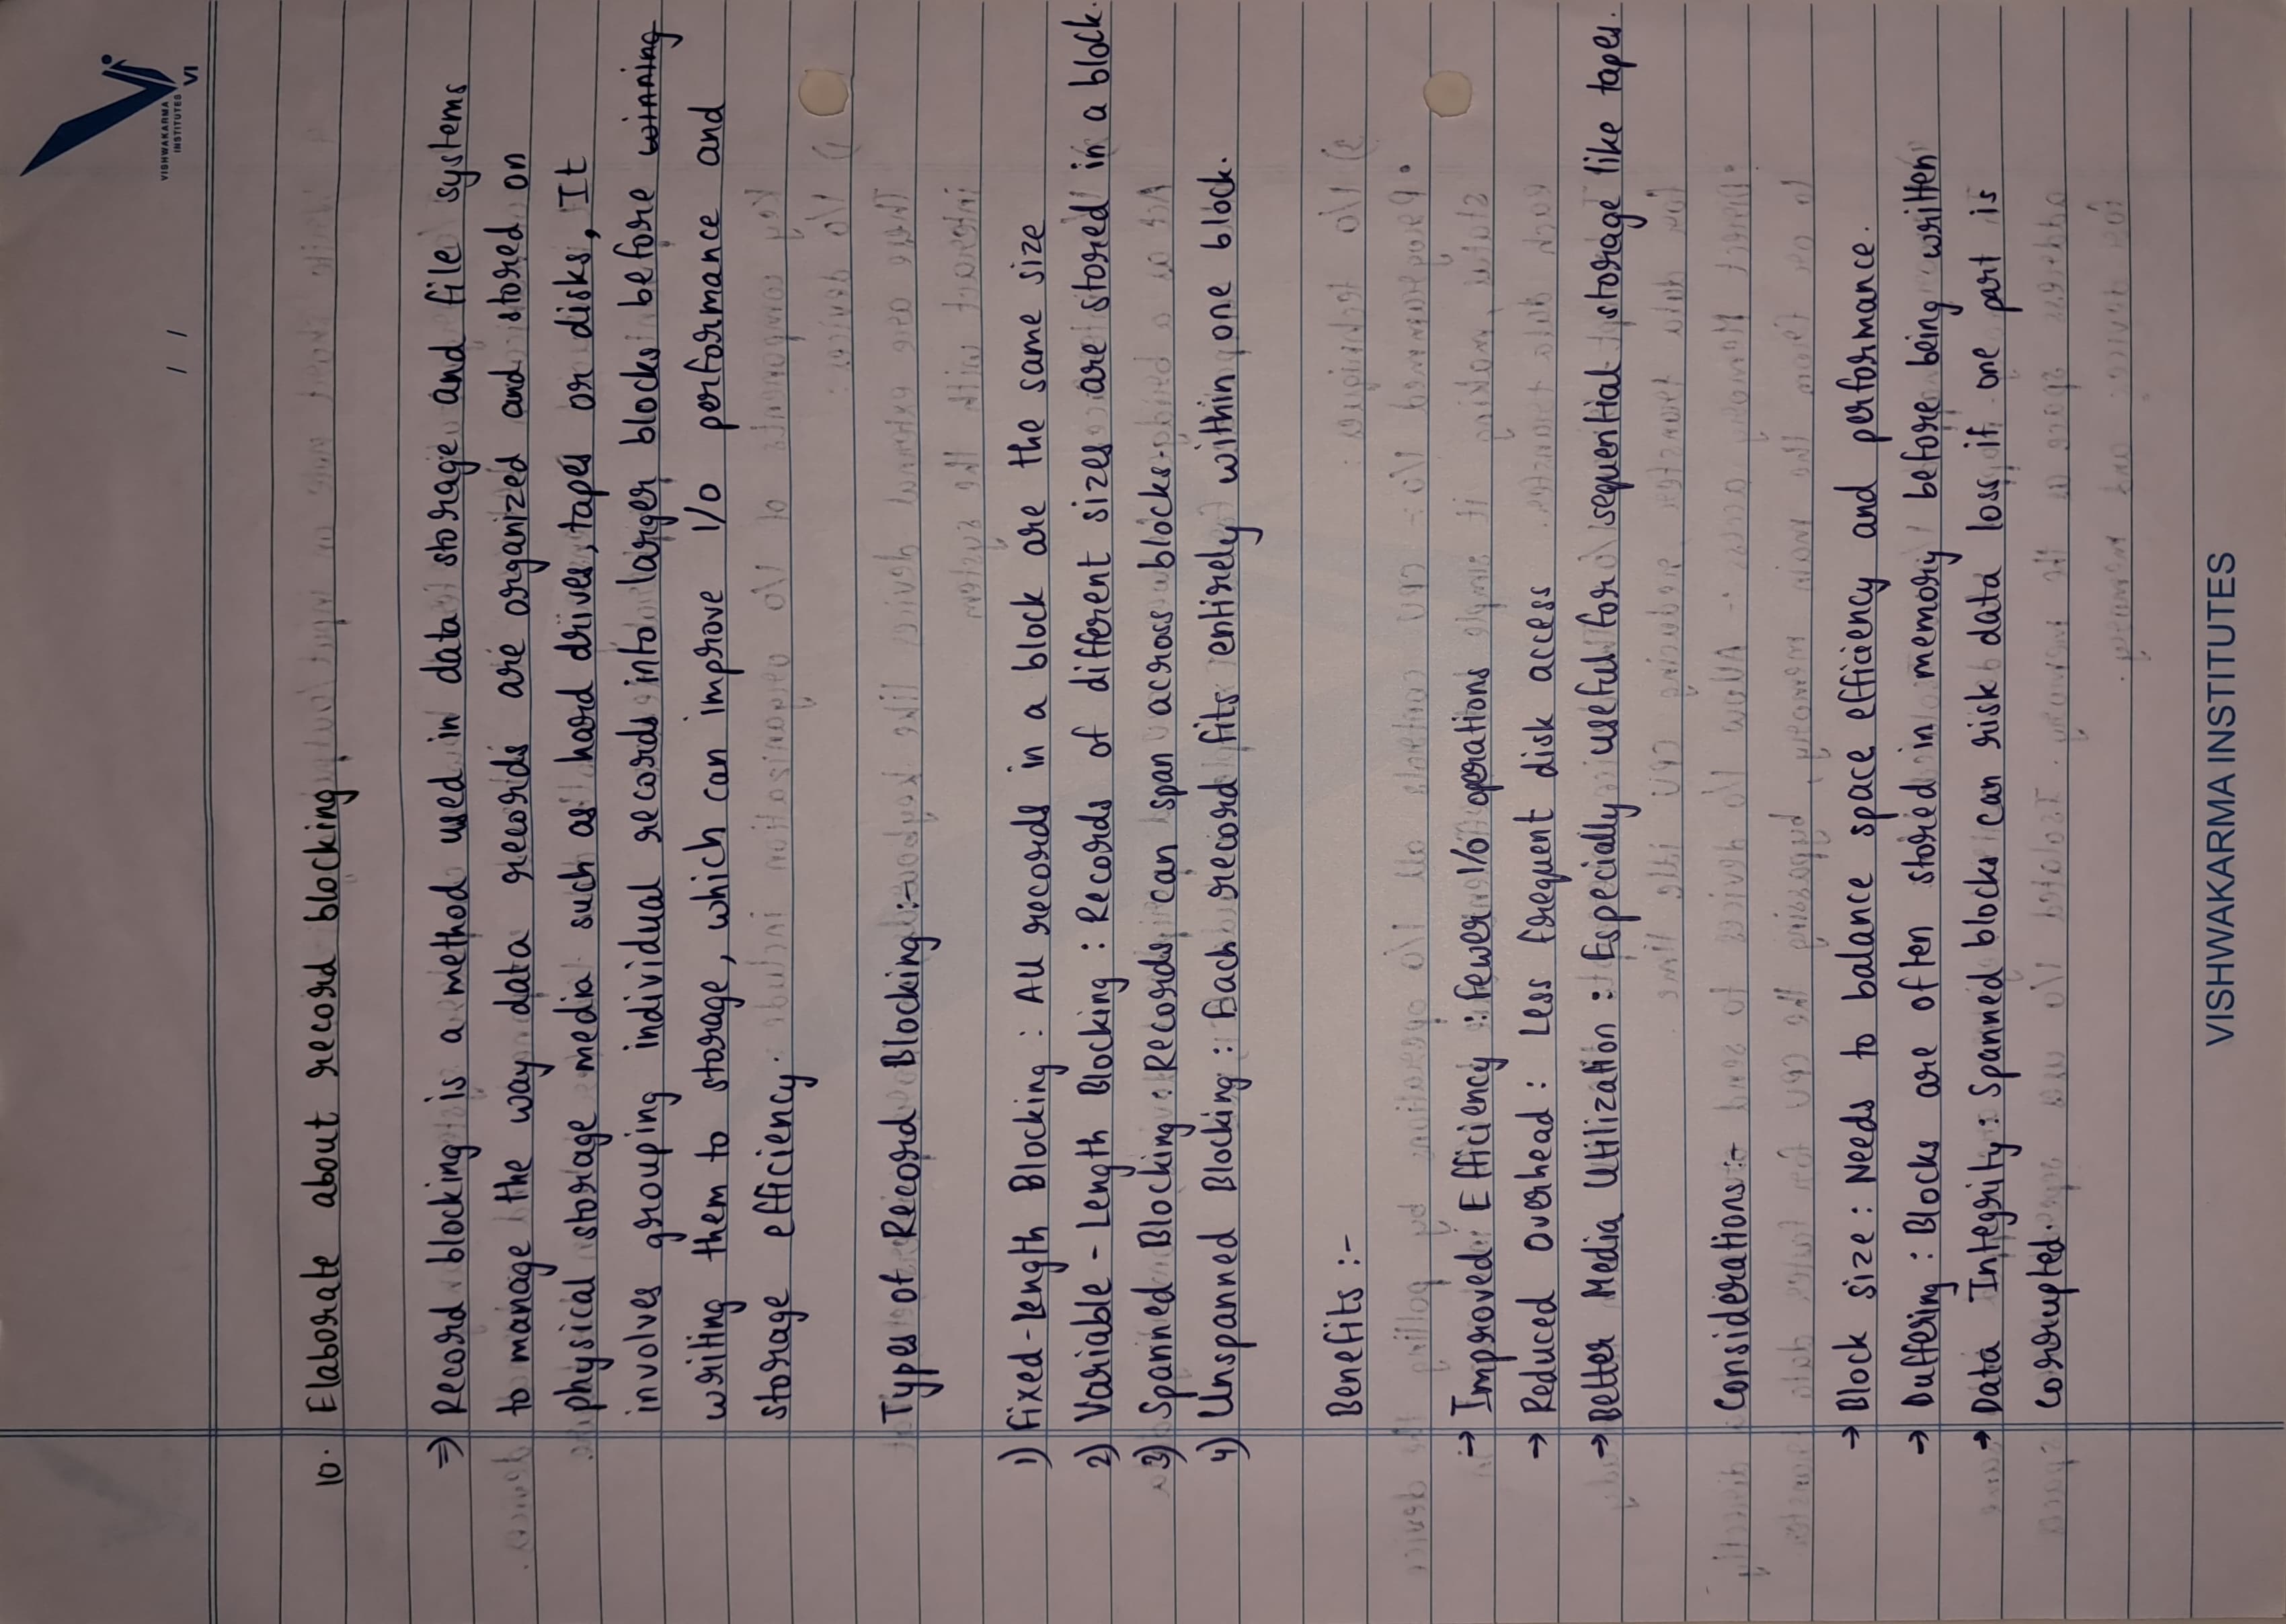 VISHWAKARMA
INSTITUTES
VI
/ /
10. Elaborate about record blocking
⇒ Record blocking is a method used in data storage and file systems
to manage the way data records are organized and stored on
physical storage media such as hard drives, tapes or disks, It
involves grouping individual records into larger blocks before winning
writing them to storage, which can improve I/O performance and
storage efficiency.
Types of Record Blocking :-
1) Fixed-Length Blocking : All records in a block are the same size
2) Variable - Length Blocking : Records of different sizes are stored in a block.
3) Spanned Blocking : Records can span across blocks.
4) Unspanned Blocking : Each record fits entirely within one block.
Benefits :-
→ Improved Efficiency : Fewer I/O operations
→ Reduced Overhead : Less frequent disk access
→ Better Media Utilization : Especially useful for sequential storage like tapes.
Considerations :-
→ Block size : Needs to balance space efficiency and performance.
→ Buffering : Blocks are often stored in memory before being written
→ Data Integrity : Spanned blocks can risk data loss if one part is
corrupted.
VISHWAKARMA INSTITUTES